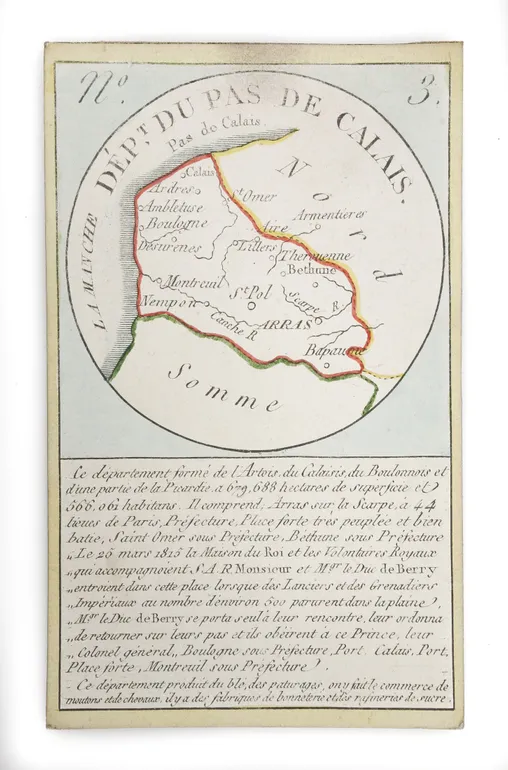 N.° 3.
DÉP.t DU PAS DE CALAIS.
Pas de Calais
LA MANCHE
Nord
Calais
Ardres
St Omer
Ambletuse
Armentieres
Boulogne
Aire
Desurenes
Lillers
Therouenne
Bethune
Montreuil
St Pol
Scarpe R.
Nempon
Canche R
ARRAS
Bapaume
Somme
Ce département formé de l'Artois, du Calaisis, du Boulonnois et
d'une partie de la Picardie, a 679,688 hectares de superficie et
566,061 habitans. Il comprend, Arras sur la Scarpe, à 44
lieues de Paris, Préfecture, Place forte très peuplée et bien
batie, Saint Omer sous Préfecture, Béthune sous Préfecture
„Le 25 mars 1815 la Maison du Roi et les Volontaires Royaux
„qui accompagnoient S.A.R Monsieur et M.gr le Duc de Berry
„entroient dans cette place lorsque des Lanciers et des Grenadiers
„Impériaux au nombre d'environ 500 parurent dans la plaine),
„M.gr le Duc de Berry se porta seul à leur rencontre, leur ordonna
„de retourner sur leurs pas et ils obéirent à ce Prince, leur
„Colonel général„ Boulogne sous Préfecture, Port. Calais, Port,
Place forte, Montreuil sous Préfecture).
- Ce département produit du blé, des paturages, on y fait le commerce de
moutons et de chevaux, il y a des fabriques de bonneterie et des rafineries de sucre.